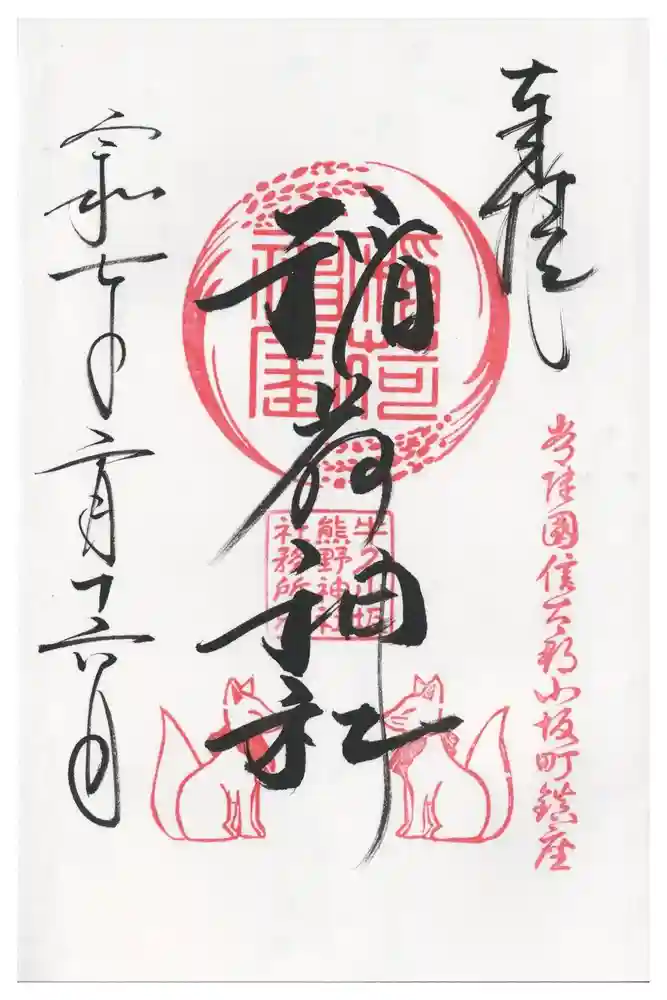 奉拝
常陸國信太郡小坂町鎮座
稲荷神社
牛久小坂
熊野神社
社務所
令和七年二月十六日